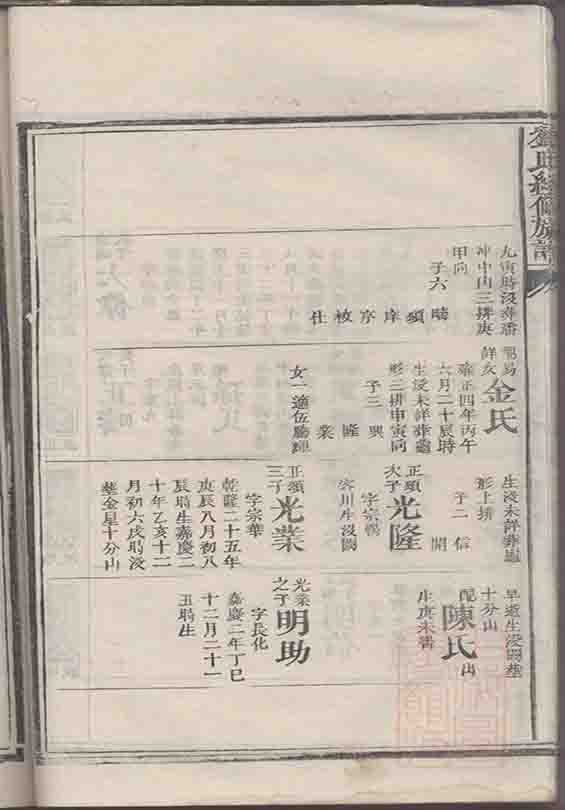 氏續修族譜
九寅時沒葬
冲中內三排庚
甲向
子六
疇
須
庠
序
枚
仕
金氏
雍正四年丙午
六月二十辰時
生沒未詳葬
形三排申寅同
子三
興
隆
業
女一適伍
生沒未詳葬
形上排
子二
信
開
正須
次子
光隆
字宗
川生沒闕
正須
三子
光業
字宗華
乾隆二十五年
庚辰八月初八
辰時生嘉慶二
十年乙亥十二
月初六戌時沒
塟金星十分山
早逝生沒闕塟
十分山
配
陳氏
生庚未
光業
之子
明助
字長化
嘉慶二年丁巳
十二月二十一
丑時生